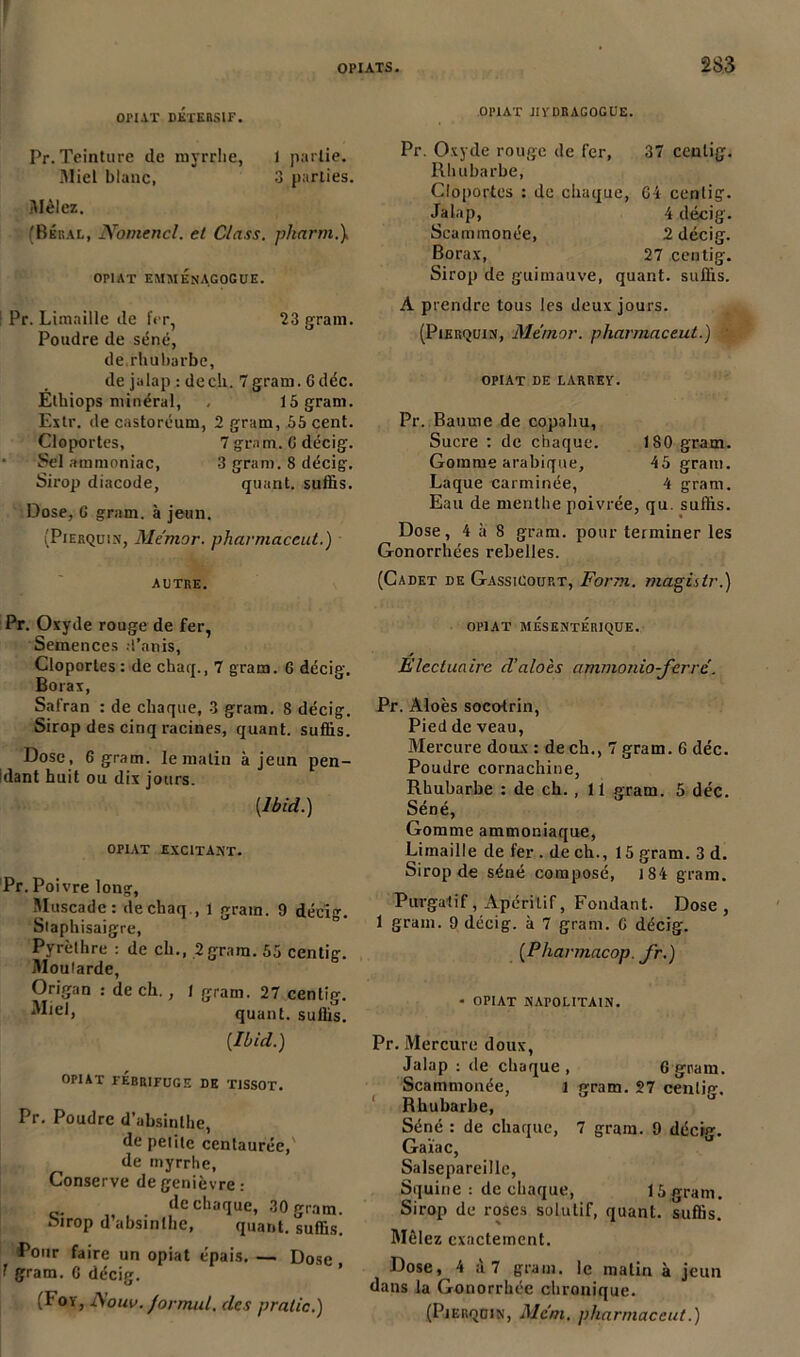 OPIATS. 283
OPIAT DÉTERSIF.
Pr. Teinture de myrrhe, 1 partie.
Miel blanc, 3 parties.
Mêlez.
(Béral, Nomencl. et Class. pharm.)
OPIAT EMMÉNAGOGUE.
Pr. Limaille de fer, 23 gram.
Poudre de séné,
de rhubarbe,
de jalap : de ch. 7 gram. 6 déc.
Éthiops minéral, 15 gram.
Extr. de castoréum, 2 gram, 55 cent.
Cloportes, 7 gram. 6 décig.
Sel ammoniac, 3 gram. 8 décig.
Sirop diacode, quant. suffis.
Dose, 6 gram. à jeun.
(Pierquin, Mémor. pharmaceut.)
AUTRE.
Pr. Oxyde rouge de fer,
Semences d'anis,
Cloportes : de chaq., 7 gram. 6 décig.
Borax,
Safran : de chaque, 3 gram. 8 décig.
Sirop des cinq racines, quant. suffis.
Dose, 6 gram. le matin à jeun pen-
dant huit ou dix jours.
(Ibid.)
OPIAT EXCITANT.
Pr. Poivre long,
Muscade : de chaq., 1 gram. 9 décig.
Staphisaigre,
Pyrèthre : de ch., 2 gram. 55 centig.
Moutarde,
Origan : de ch., 1 gram. 27 centig.
Miel, quant. suffis.
(Ibid.)
OPIAT FÉBRIFUGE DE TISSOT.
Pr. Poudre d'absinthe,
de petite centaurée,
de myrrhe,
Conserve de genièvre :
de chaque, 30 gram.
Sirop d'absinthe, quant. suffis.
Pour faire un opiat épais. — Dose,
gram. 6 décig.
(Foy, Nouv. formul. des pratic.)
OPIAT HYDRAGOGUE.
Pr. Oxyde rouge de fer, 37 centig.
Rhubarbe,
Cloportes : de chaque, 64 centig.
Jalap, 4 décig.
Scammonée, 2 décig.
Borax, 27 centig.
Sirop de guimauve, quant. suffis.
A prendre tous les deux jours.
(Pierquin, Mémor. pharmaceut.)
OPIAT DE LARREY.
Pr. Baume de copahu,
Sucre : de chaque. 180 gram.
Gomme arabique, 45 gram.
Laque carminée, 4 gram.
Eau de menthe poivrée, qu. suffis.
Dose, 4 à 8 gram. pour terminer les
Gonorrhées rebelles.
(Cadet de Gassicourt, Form. magistr.)
OPIAT MÉSENTÉRIQUE.
Électuaire d'aloès ammonio-ferré.
Pr. Aloès socotrin,
Pied de veau,
Mercure doux : de ch., 7 gram. 6 déc.
Poudre cornachine,
Rhubarbe : de ch., 11 gram. 5 déc.
Séné,
Gomme ammoniaque,
Limaille de fer. de ch., 15 gram. 3 d.
Sirop de séné composé, 184 gram.
Purgatif, Apéritif, Fondant. Dose,
1 gram. 9 décig. à 7 gram. 6 décig.
(Pharmacop. fr.)
OPIAT NAPOLITAIN.
Pr. Mercure doux,
Jalap : de chaque, 6 gram.
Scammonée, 1 gram. 27 centig.
Rhubarbe,
Séné : de chaque, 7 gram. 9 décig.
Gaïac,
Salsepareille,
Squine : de chaque, 15 gram.
Sirop de roses solutif, quant. suffis.
Mêlez exactement.
Dose, 4 à 7 gram. le matin à jeun
dans la Gonorrhée chronique.
(Pierquin, Mém. pharmaceut.)